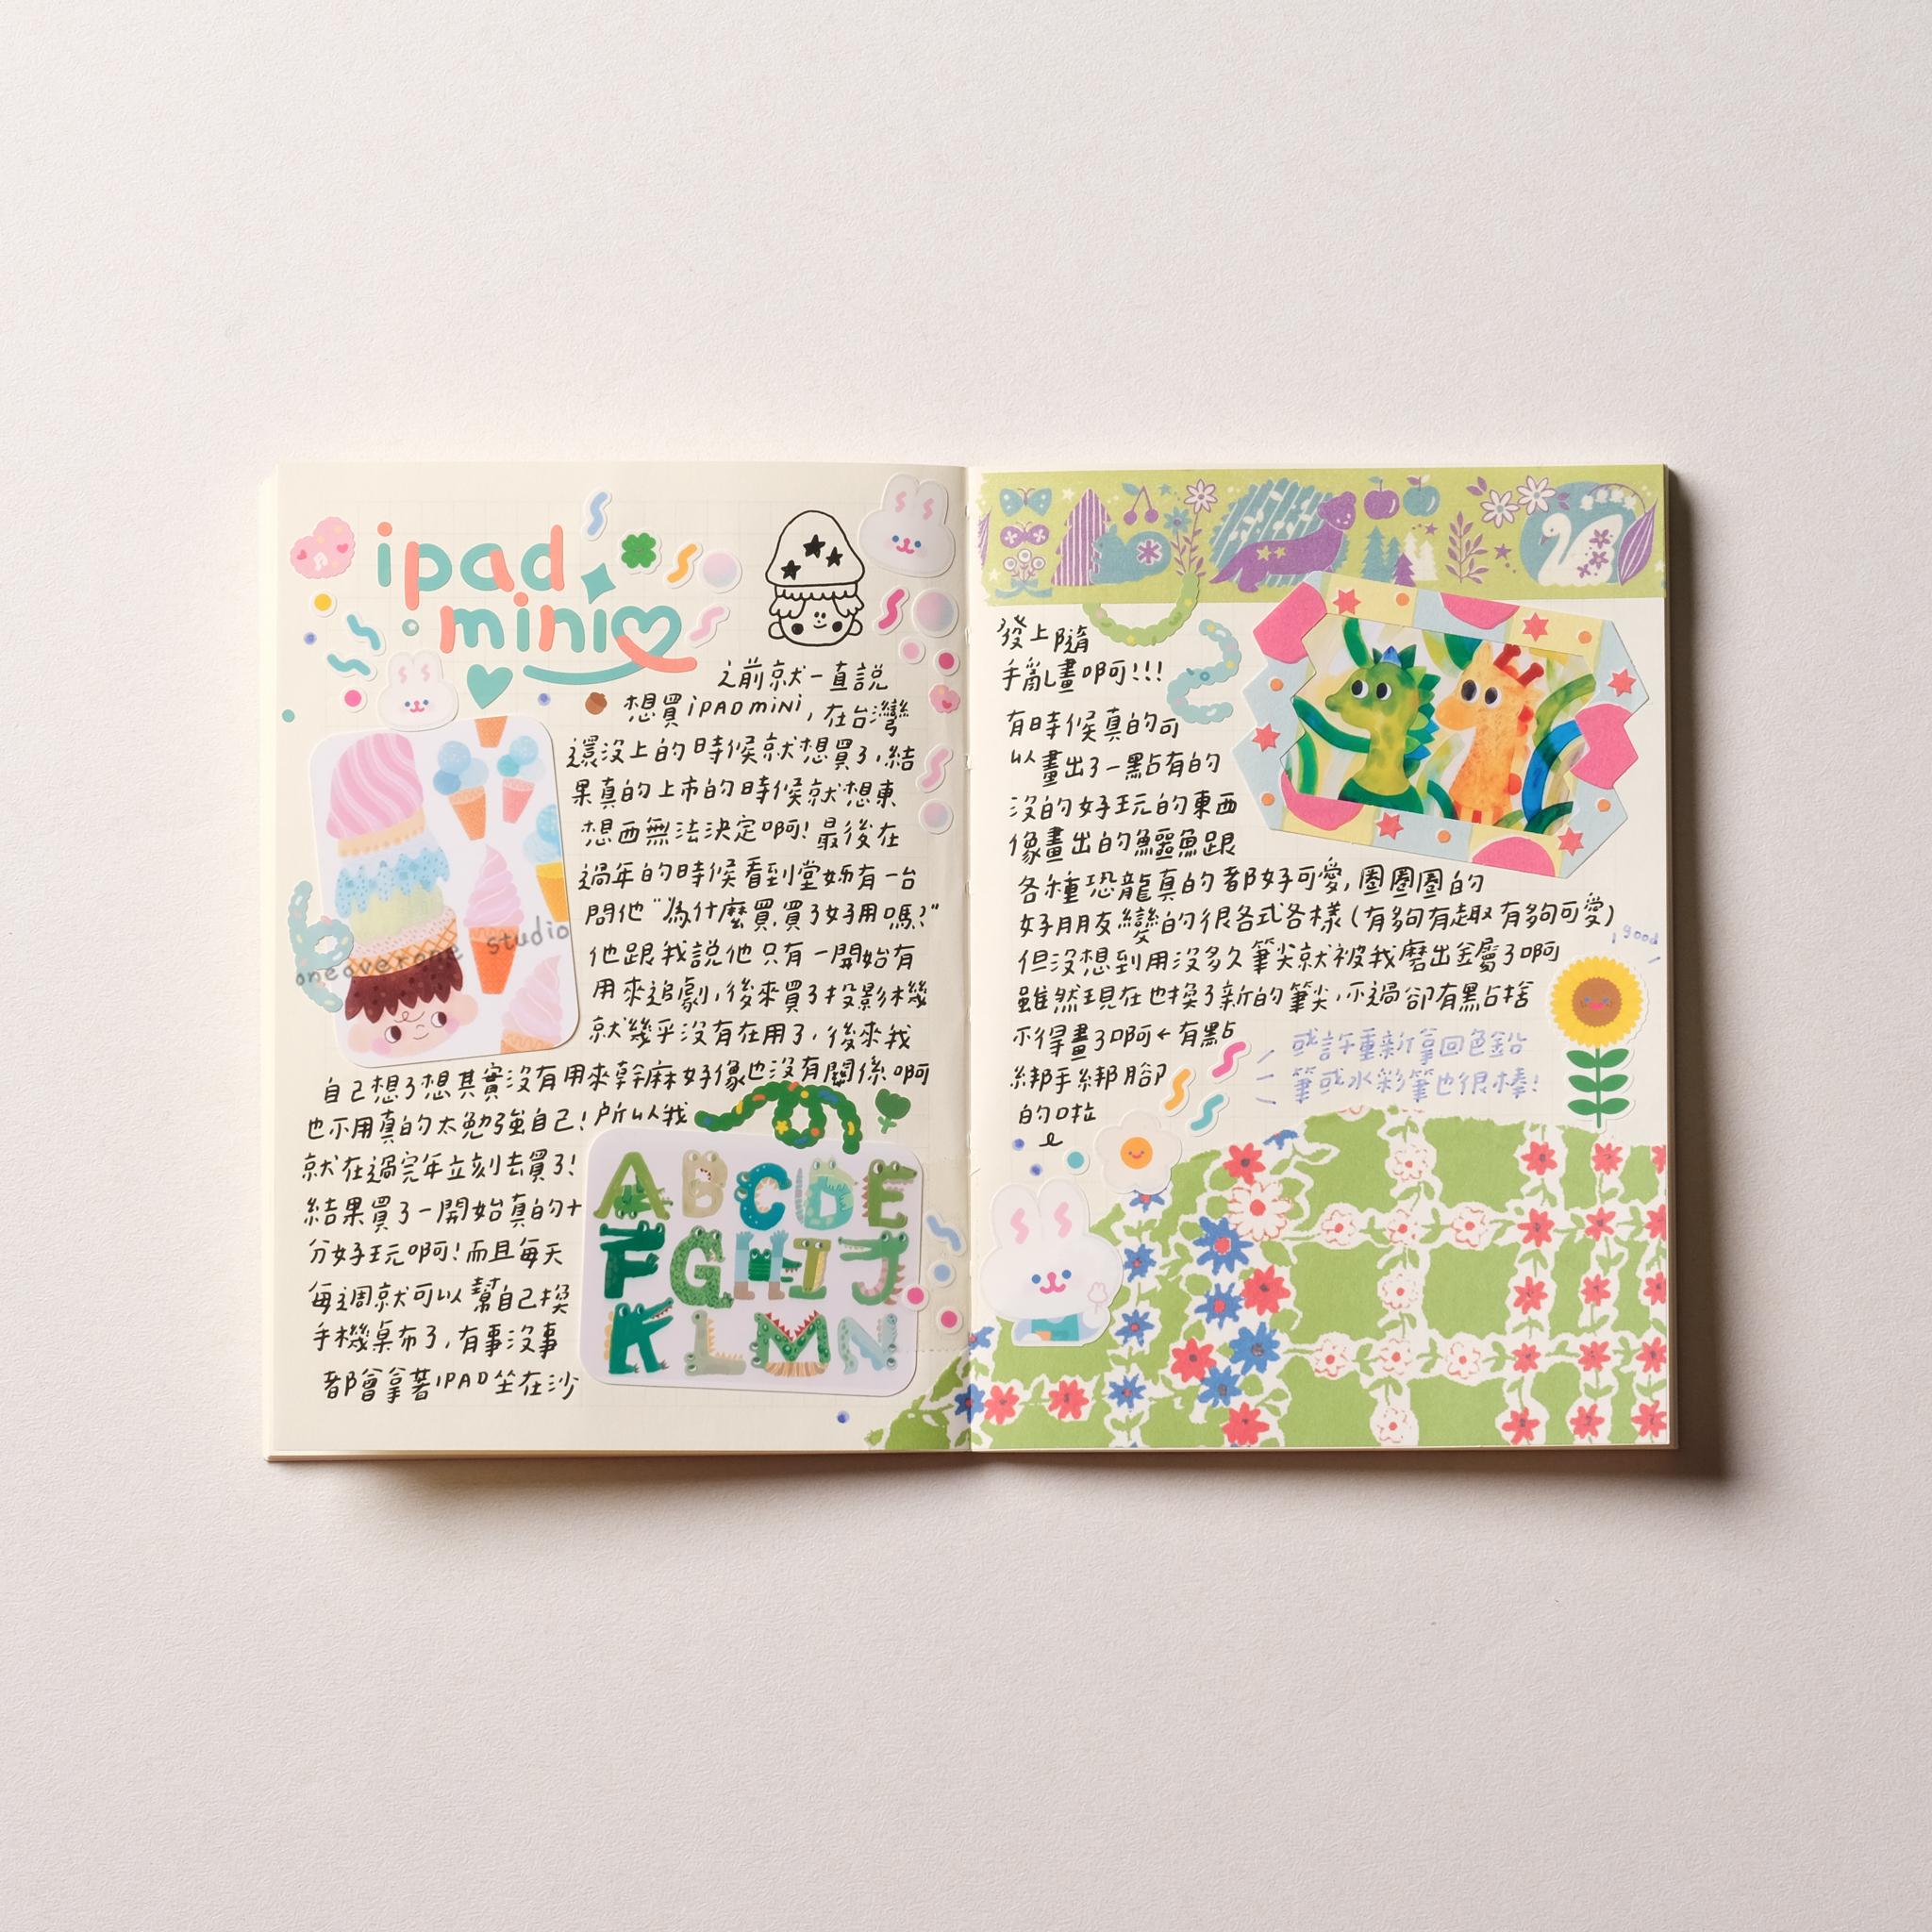 ipad
mini
之前就一直說
想買iPAD mini,在台灣
還沒上的時候就想買了,結
果真的上市的時候就想東
想西無法決定啊!最後在
過年的時候看到堂姊有一台
問他"為什麼買,買了好用嗎?"
他跟我說他只有一開始有
用來追劇,後來買了投影機
就幾乎沒有在用了,後來我
自己想了想其實沒有用來幹麻好像也沒有關係啊
也不用真的太勉強自己!所以我
就在過完年立刻去買了!
結果買了一開始真的十
分好玩啊!而且每天
每週就可以幫自己換
手機桌布了,有事沒事
都會拿著iPAD坐在沙
oneoverone studio
A B C D E
F G H I J
K L M N
發上隨
手亂畫啊!!!
有時候真的可
以畫出了一點有的
沒的好玩的東西
像畫出的鱷魚跟
各種恐龍真的都好可愛,圈圈圈的
好朋友變的很各式各樣(有夠有趣有夠可愛)
但沒想到用沒多久筆尖就被我磨出金屬了啊
雖然現在也換了新的筆尖,不過卻有點捨
不得畫了啊←有點
綁手綁腳
的啦
或許重新拿回色鉛
筆或水彩筆也很棒!
good